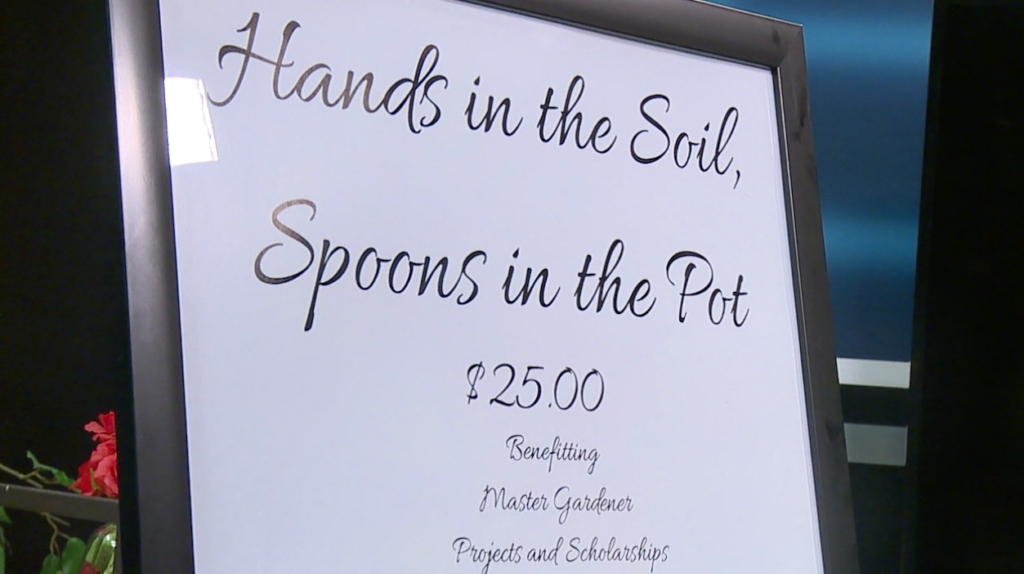 Hands in the Soil,
Spoons in the Pot
$25.00
Benefitting
Master Gardener
Projects and Scholarships